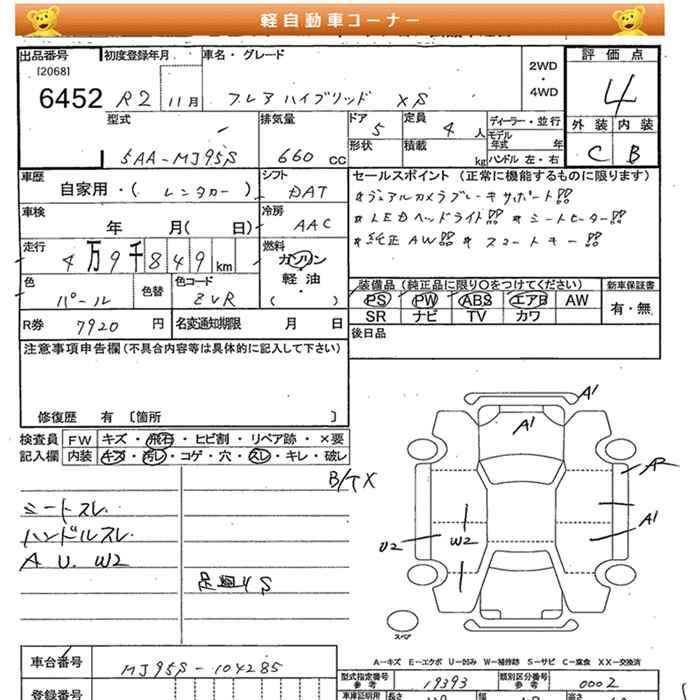 軽自動車コーナー
出品番号 初度登録年月 車名・グレード 2WD・4WD 評価点
[2068]
6452 R2 11月 フレア ハイブリッド XS 4
型式 排気量 ドア 5 定員 4人 ディーラー・並行 外装 内装
モデル年式 年
5AA-MJ95S 660 cc 形状 積載 kg ハンドル 左・右 C B
車歴 シフト セールスポイント (正常に機能するものに限ります)
自家用・( レンタカー ) DAT #デュアルカメラブレーキサポート!!
車検 冷房 #LEDヘッドライト!! #シートヒーター!!
年 月( 日) AAC #純正AW!! #スマートキー!!
走行 燃料
4万9千849km ガソリン
軽油
・
( )
色 色替 色コード 装備品 (純正品に限り○をつけてください) 新車保証書
パール ZVR PS PW ABS エアB AW 有・無
SR ナビ TV カワ
R券 7920 円 名変通知期限 月 日 後日品
注意事項申告欄 (不具合内容等は具体的に記入して下さい)
修復歴 有 〔箇所 〕
検査員 FW キズ・飛石・ヒビ割・リペア跡・×要
記入欄 内装 キズ・汚レ・コゲ・穴・スレ・キレ・破レ
シートスレ
ハンドルスレ
A U. W2
足廻りS
A1
A1
A2
A1
U2
W2
スペア
A-キズ E-エクボ U-凹み W-補修跡 S-サビ C-腐食 XX-交換済
車台番号 MJ95S-104285
型式指定番号 参考 19393 類別区分番号 参考 0002
登録番号 車庫証明用 長さ 幅 高さ